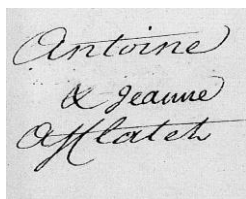 Antoine
& Jeanne
Afflatet